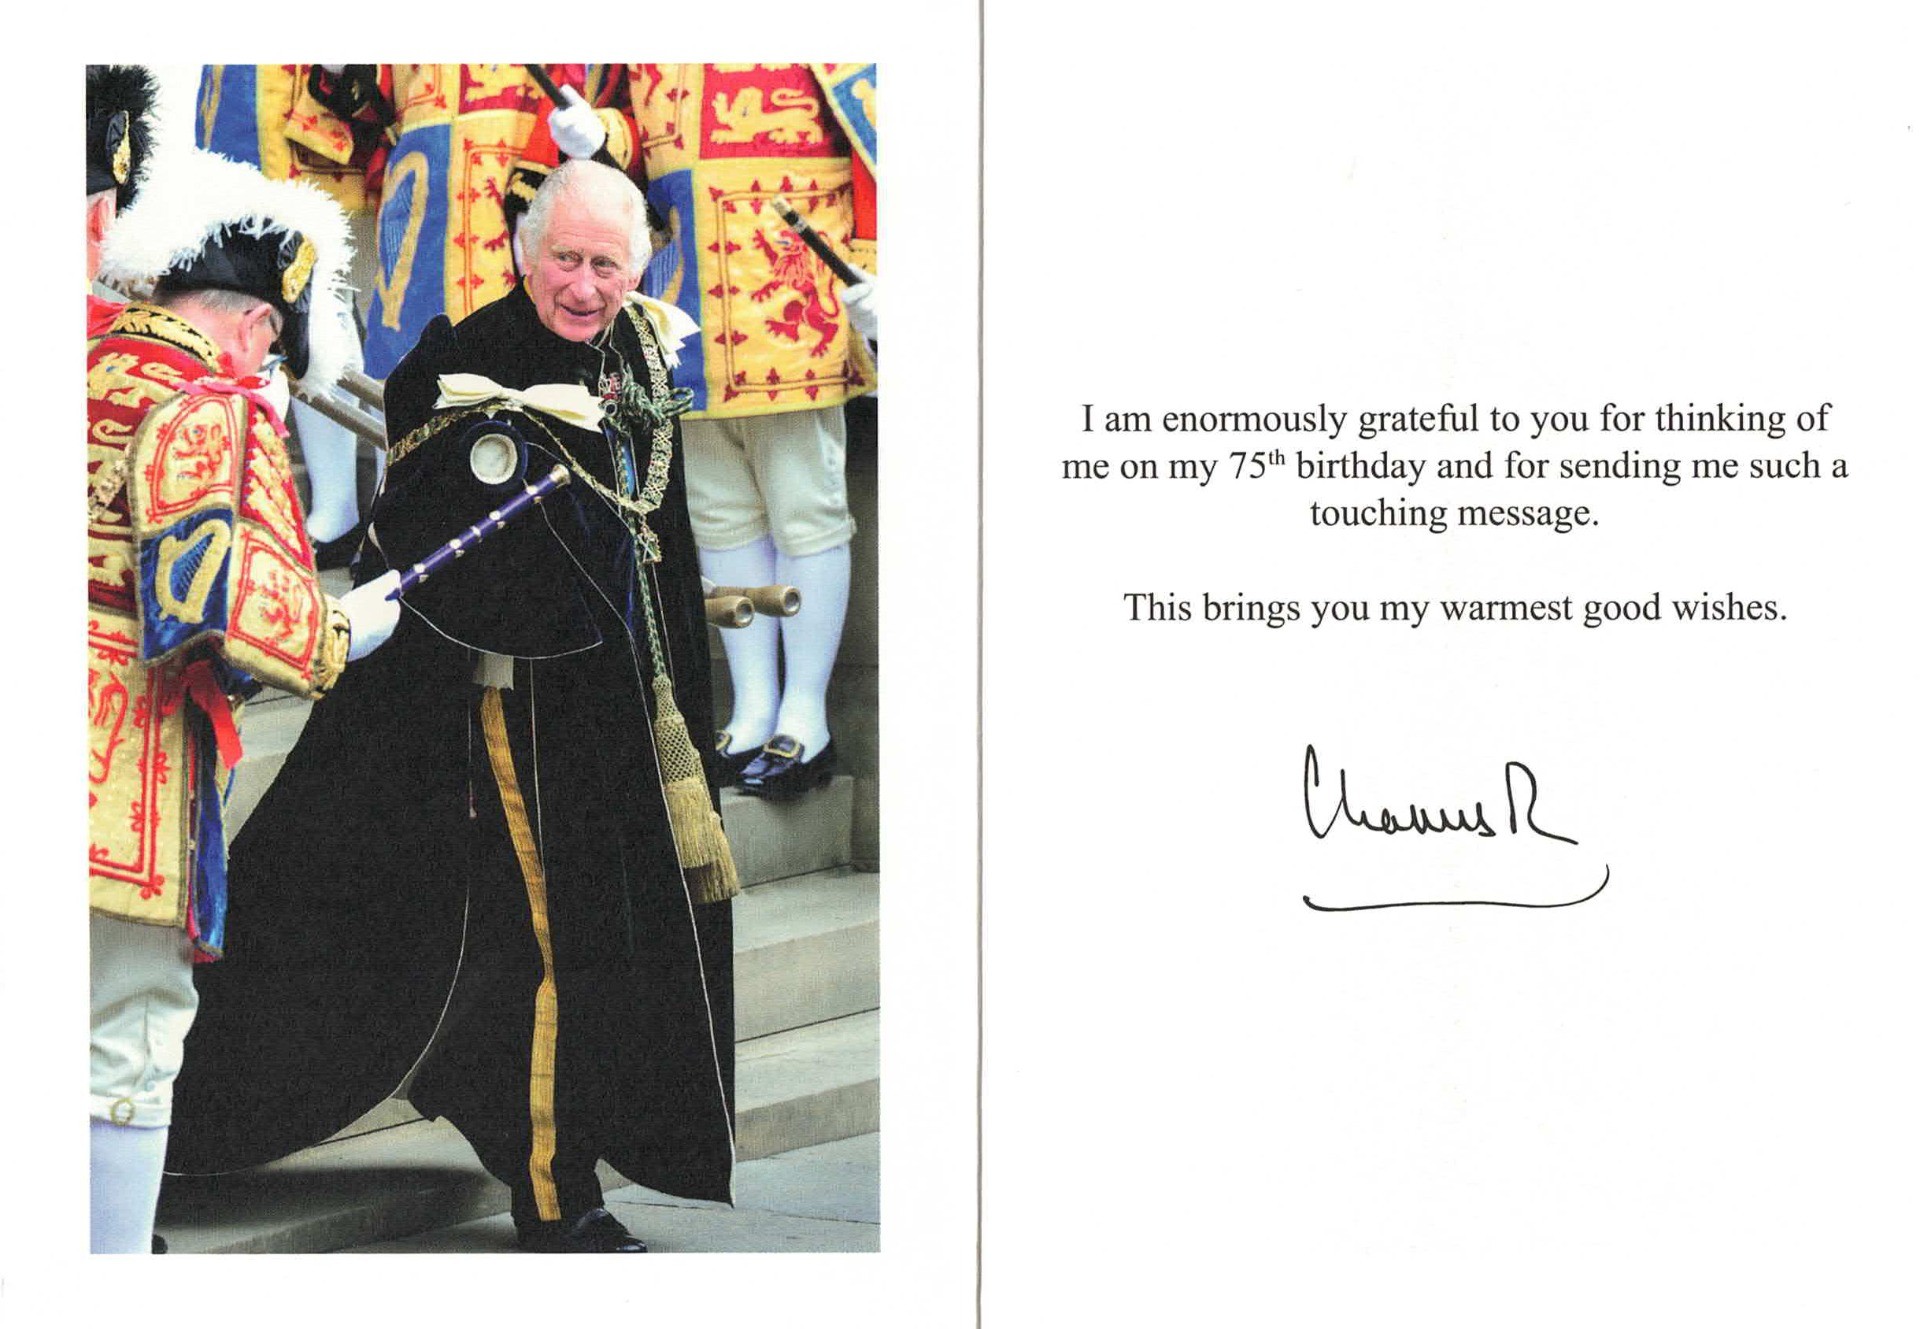 I am enormously grateful to you for thinking of
me on my 75th birthday and for sending me such a
touching message.
This brings you my warmest good wishes.
Charles R